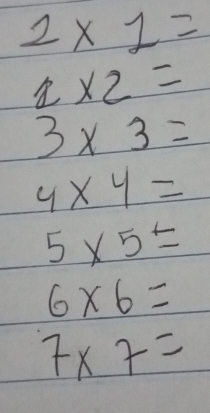 2 × 1 =
1 × 2 =
3 × 3 =
4 × 4 =
5 × 5 =
6 × 6 =
7 × 7 =